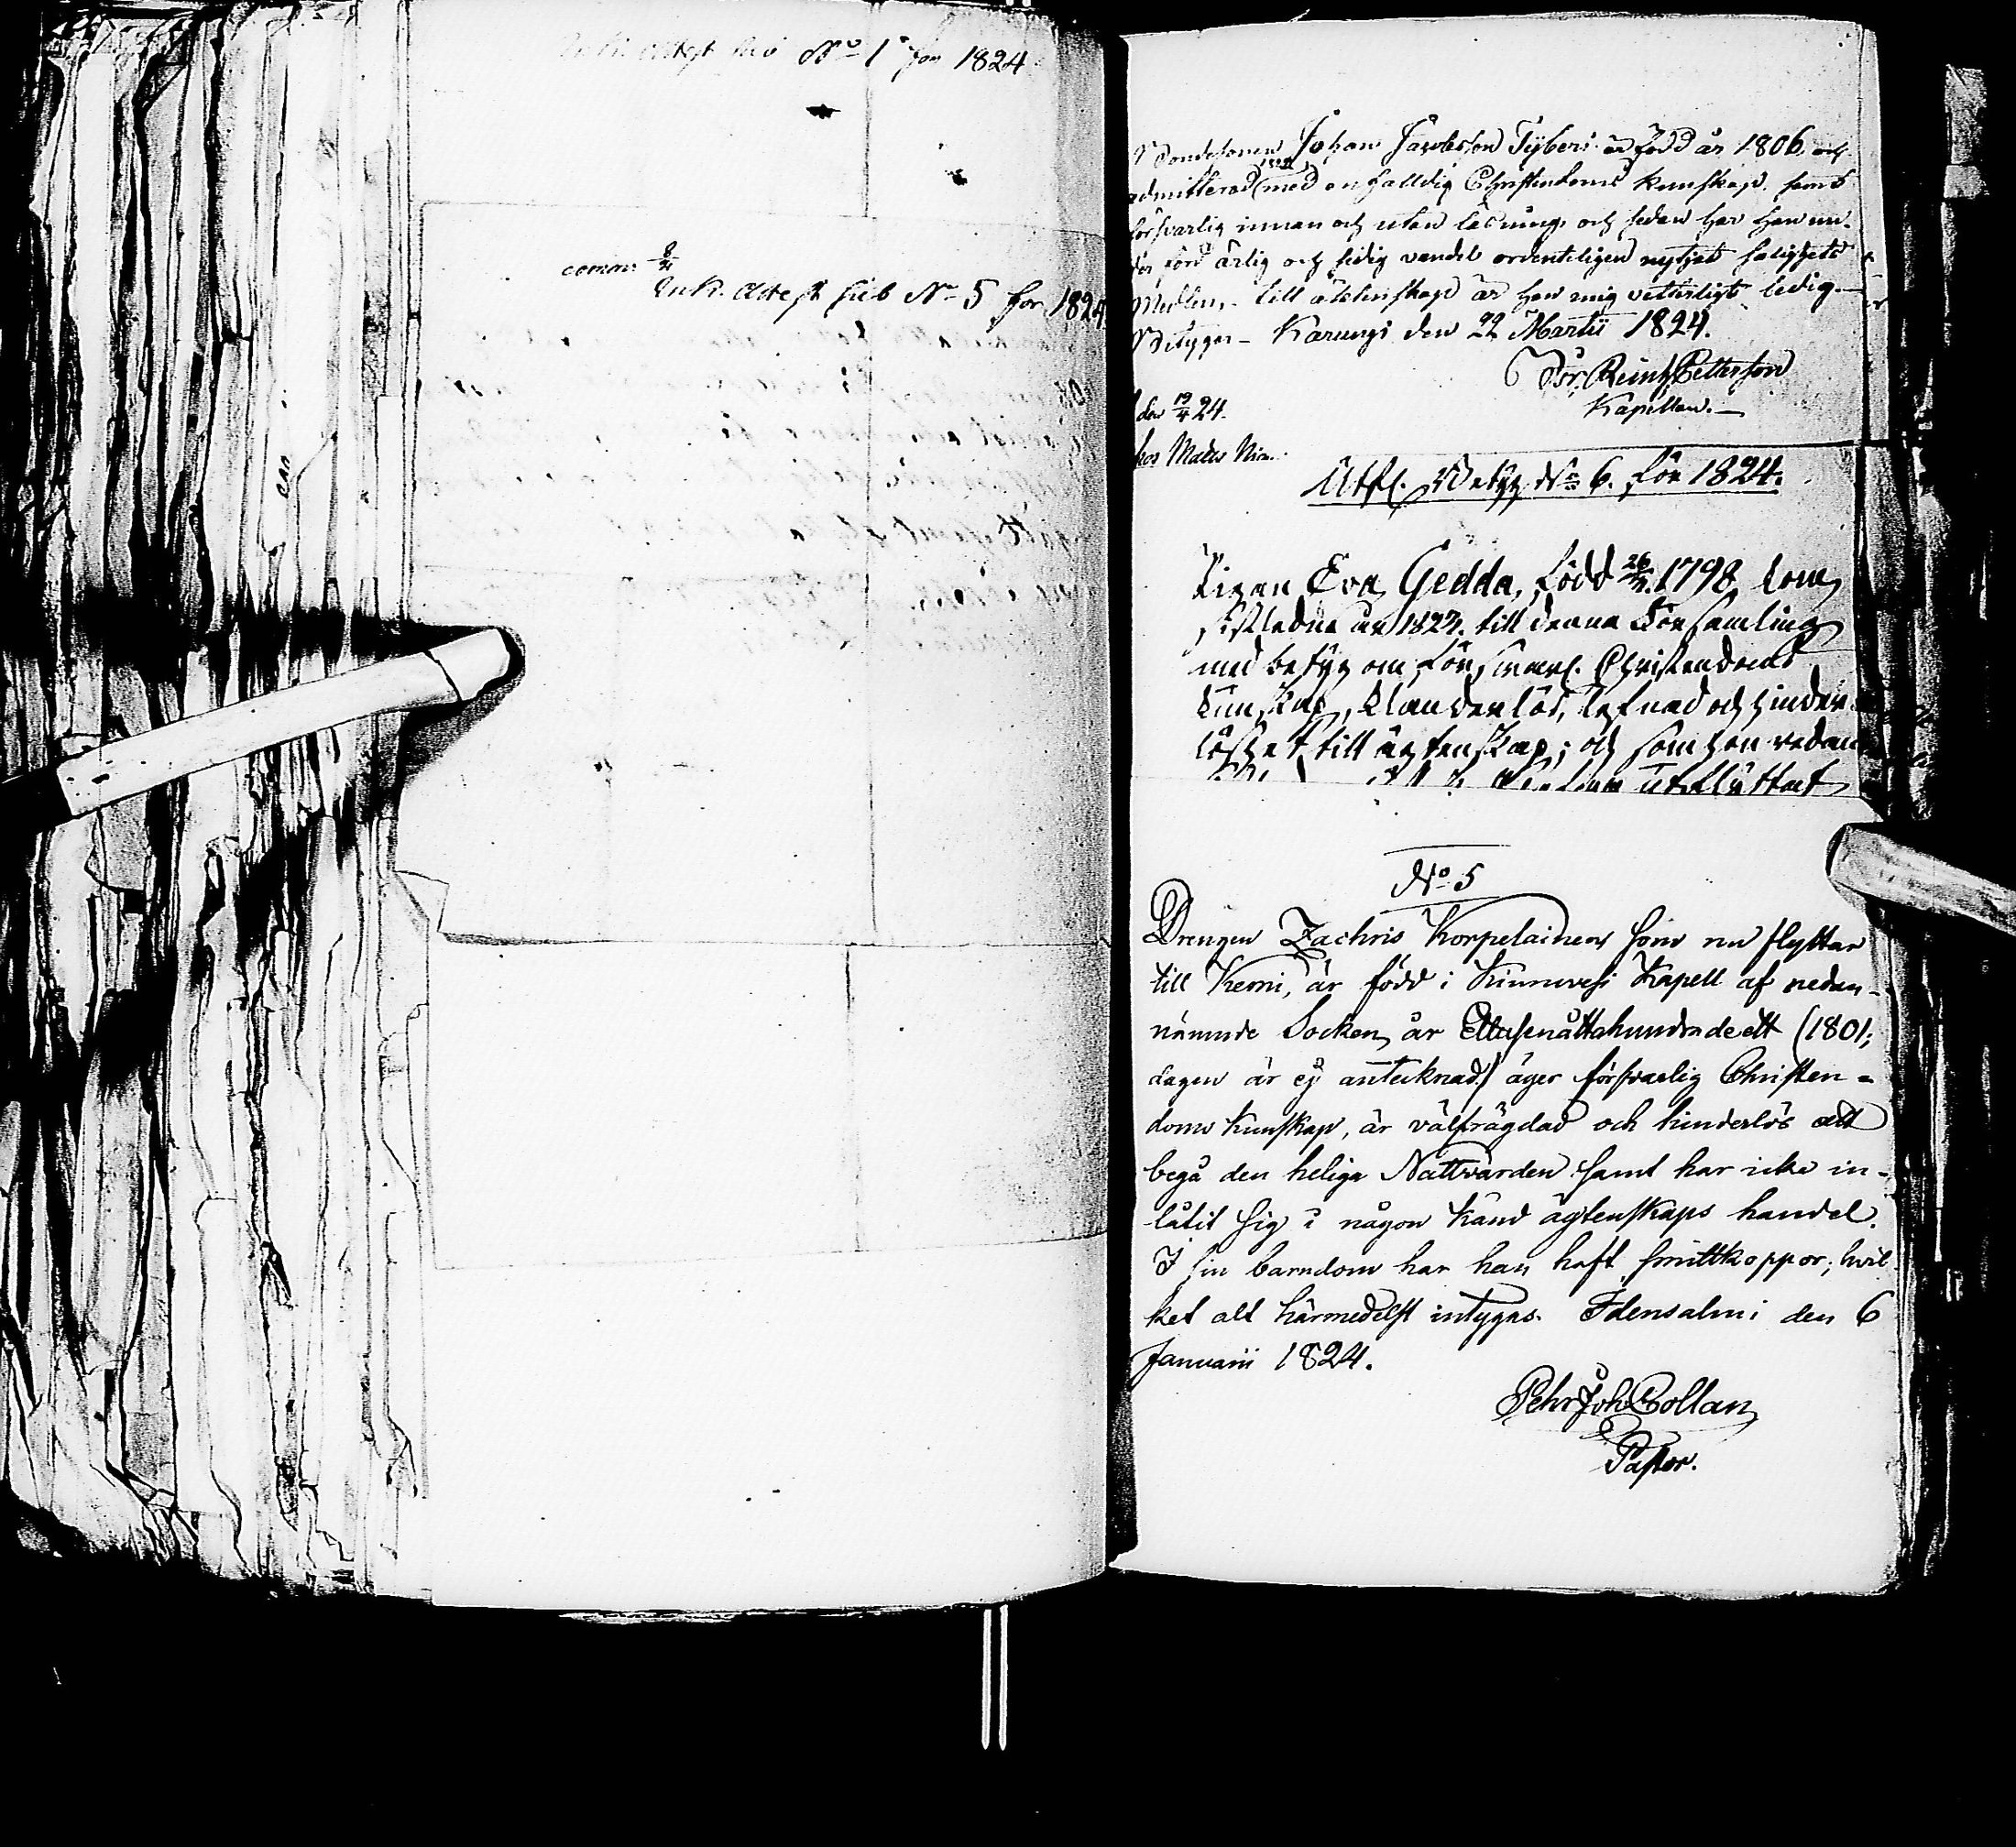 No 1 för 1824
comm: 8/4
Ink. Attest sub No 5 för 1824
Bondesonen Johan Jacobsson Tyberi är född år 1806 och
admitterad med enfalldig Christendoms kunskap, samt
försvarlig innan och utan läsning, och sedan har han un-
der förd ärlig och sedig vandel ordenteligen nytjat salighets
Medlen. Till äktenskap är han mig vetterligt ledig.—
Betygar— Karungi den 22 Martii 1824.
Petterson
Kapellan.—
den 19/4 24.
hos Matts
Utfl. Betyg No 6. för 1824.
Pigan Eva Gedda, född 26/ 1798, kom
sistledne år 1823. till denna Församling
med betyg om försvarl. Christendoms
kunskap, klanderlös, lefnad och hinders
löshet till ägtenskap; och som hon redan
utflyttat
No 5
Drengen Zachris Korpelainen som nu flyttar
till Kemi, är född i Kiuruvesi Kapell af nedan-
nämnde Socken år Ettusenåttahundrade ett (1801;
dagen är ej antecknad) äger försvarlig Christen-
doms kunskap, är välfrägdad och hinderlös att
begå den heliga Nattvarden samt har icke in-
låtit sig i någon känd ägtenskaps handel.
I sin barndom har han haft smittkoppor; hvil-
ket alt härmedelst intygas. Idensalmi den 6
Januarii 1824.
Pehr Joh Collan
Pastor.